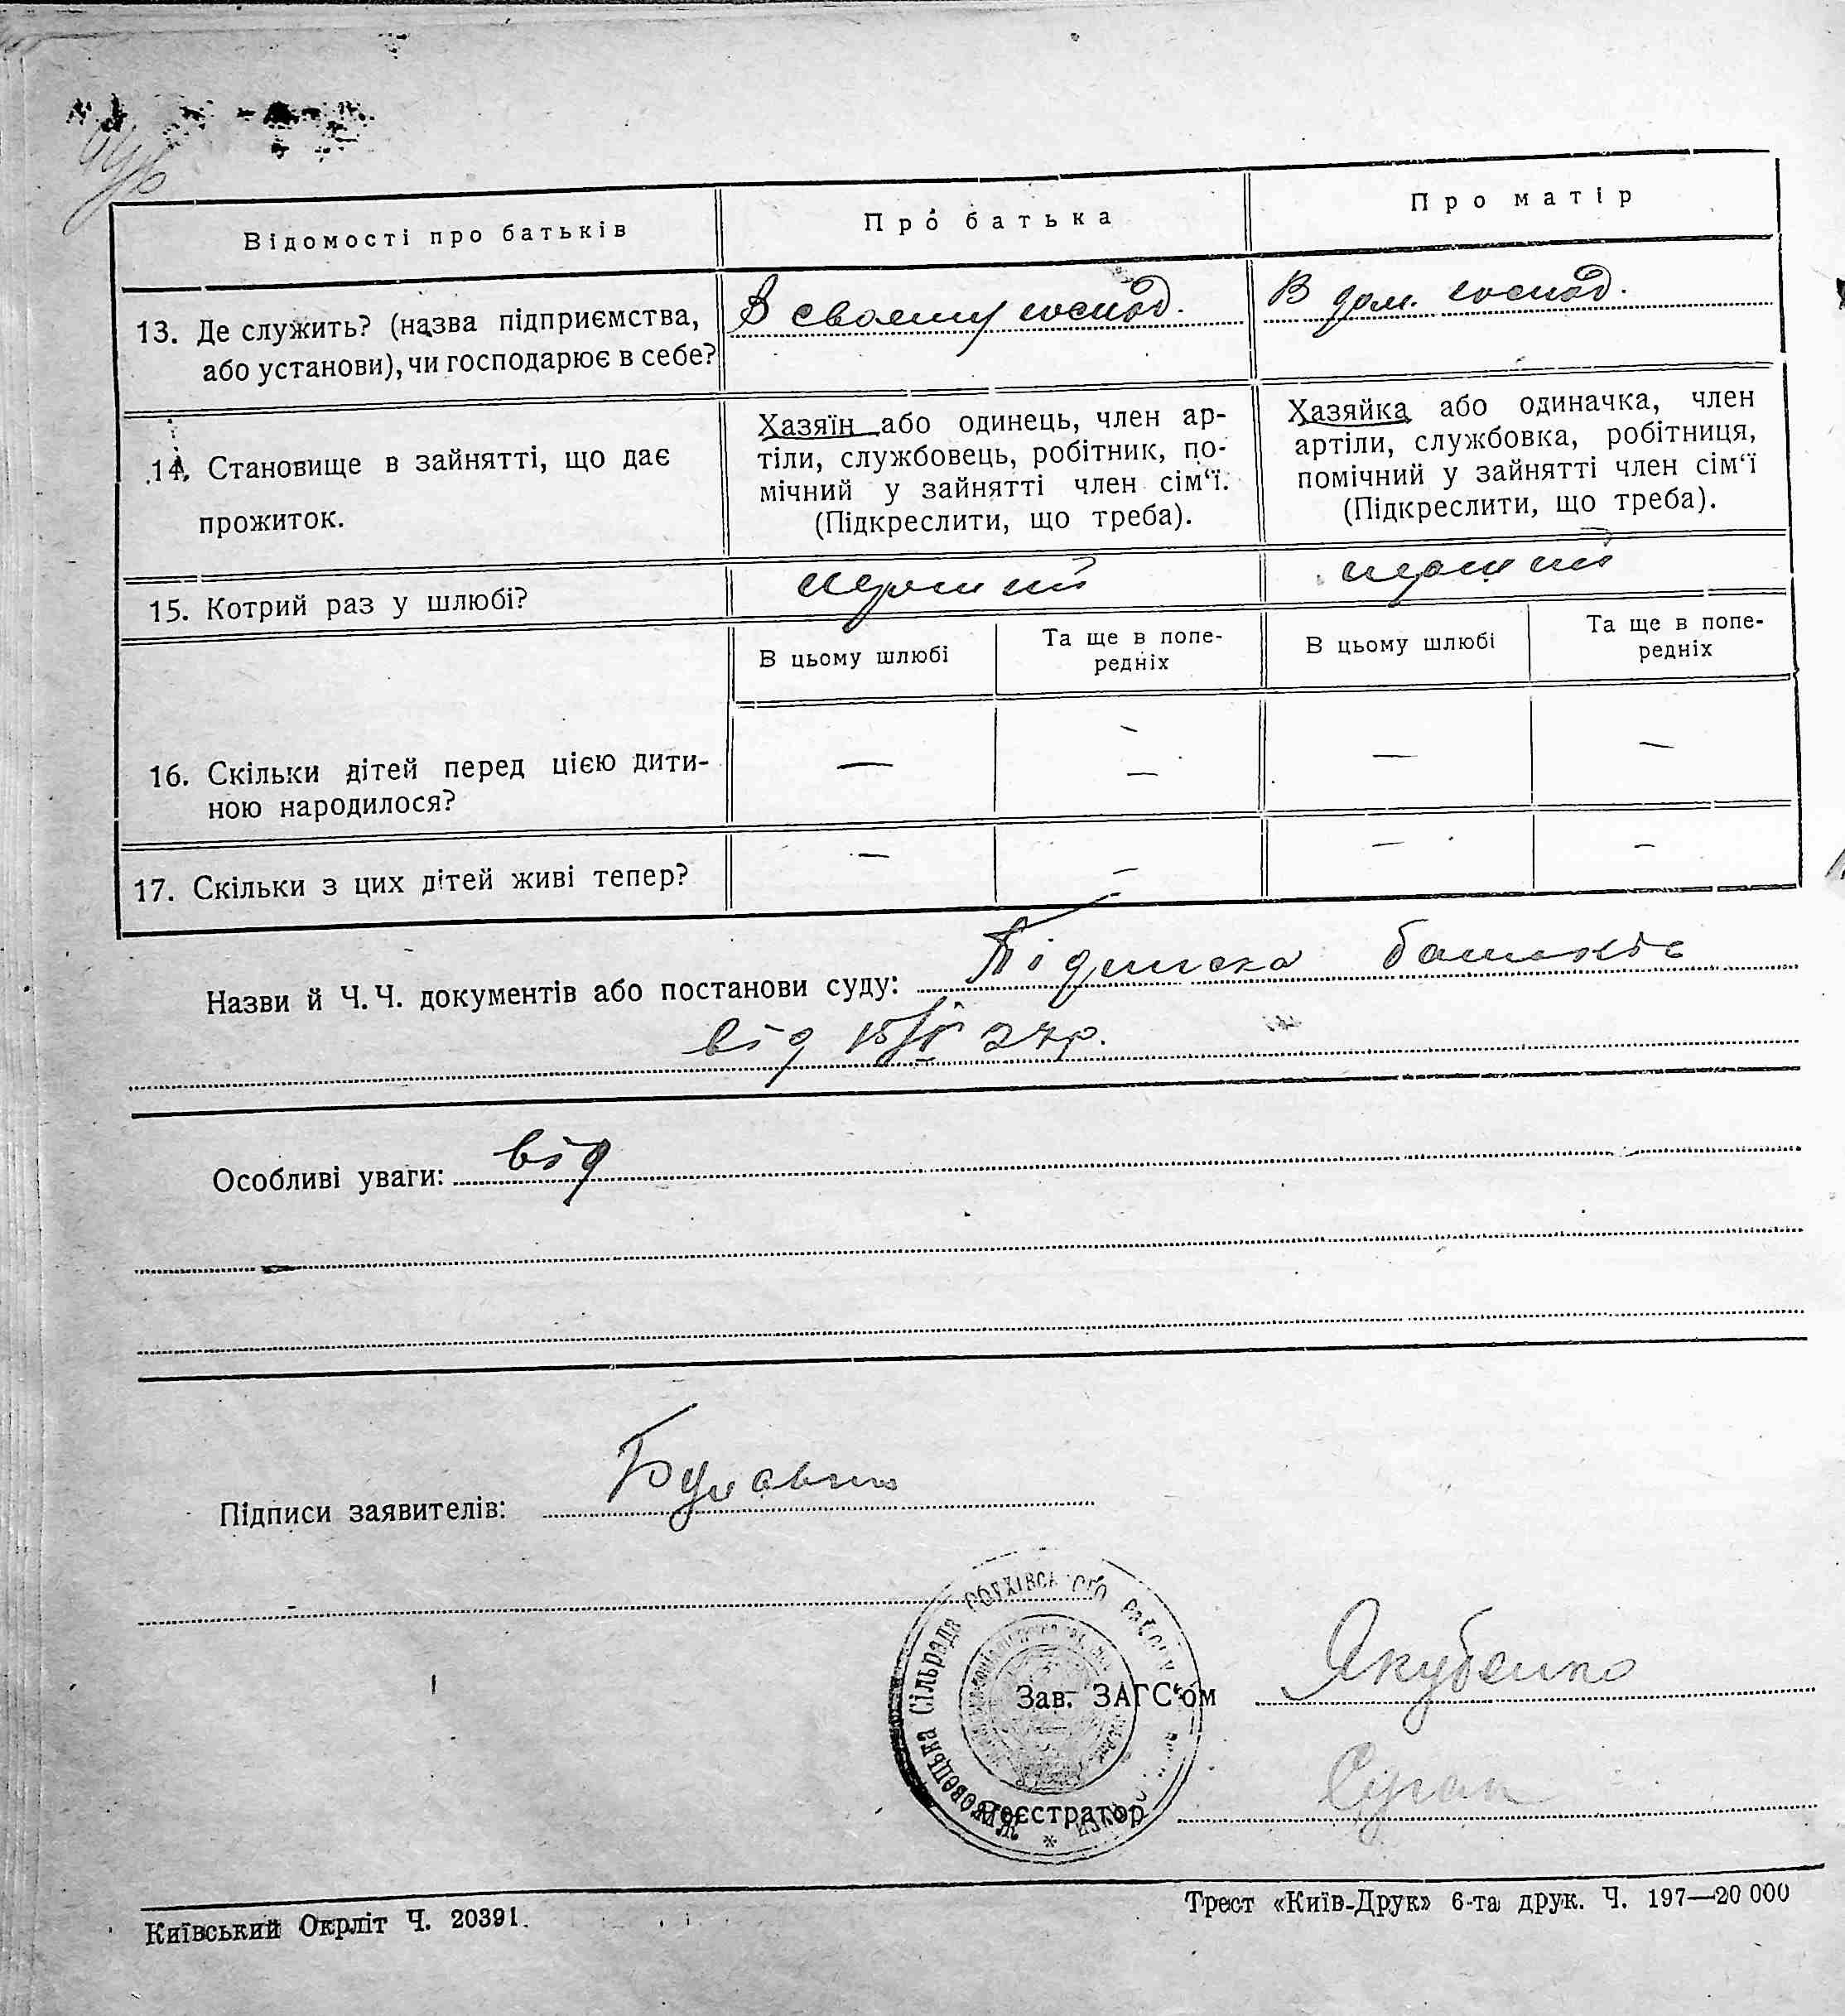 Відомості про батьків
Про батька
Про матір
13. Де служить? (назва підприємства,
або установи), чи господарює в себе?
В своєму господ.
В дом. господ.
14. Становище в зайнятті, що дає
прожиток.
Хазяїн або одинець, член ар-
тіли, службовець, робітник, по-
мічний у зайнятті член сім‘ї.
(Підкреслити, що треба).
Хазяйка або одиначка, член
артіли, службовка, робітниця,
помічний у зайнятті член сім‘ї
(Підкреслити, що треба).
15. Котрий раз у шлюбі?
перший
перший
В цьому шлюбі
Та ще в попе-
редніх
В цьому шлюбі
Та ще в попе-
редніх
16. Скільки дітей перед цією дити-
ною народилося?
— — — —
17. Скільки з цих дітей живі тепер?
— — — —
Назви й Ч.Ч. документів або постанови суду: Підписка батьків
від 27р.
Особливі уваги: від
Підписи заявителів:
Сільрада Обухівського району
Зав. ЗАГС‘ом Якубенко
Реєстратор
Київський Окрліт Ч. 20391.
Трест «Київ-Друк» 6-та друк. Ч. 197—20 000